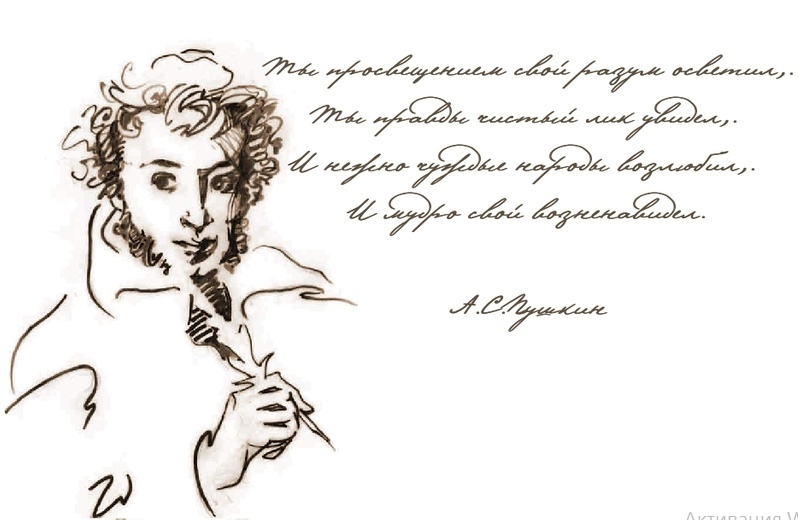 Ты просвещением свой разум осветил,.
Ты правды чистый лик увидел,.
И нежно чуждые народы возлюбил,.
И мудро свой возненавидел.
А.С.Пушкин
Активация W